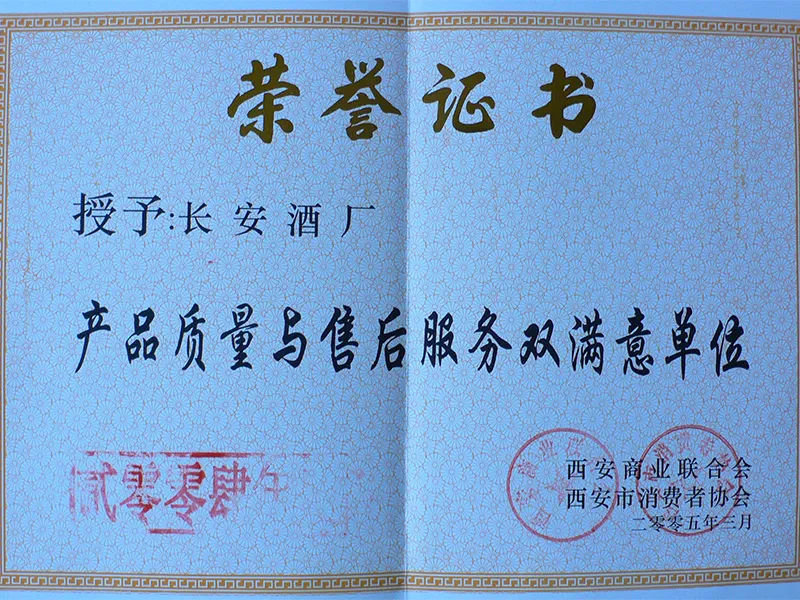 荣誉证书
授予:长安酒厂
产品质量与售后服务双满意单位
贰零零肆年
西安商业联合会
西安市消费者协会
二零零五年三月